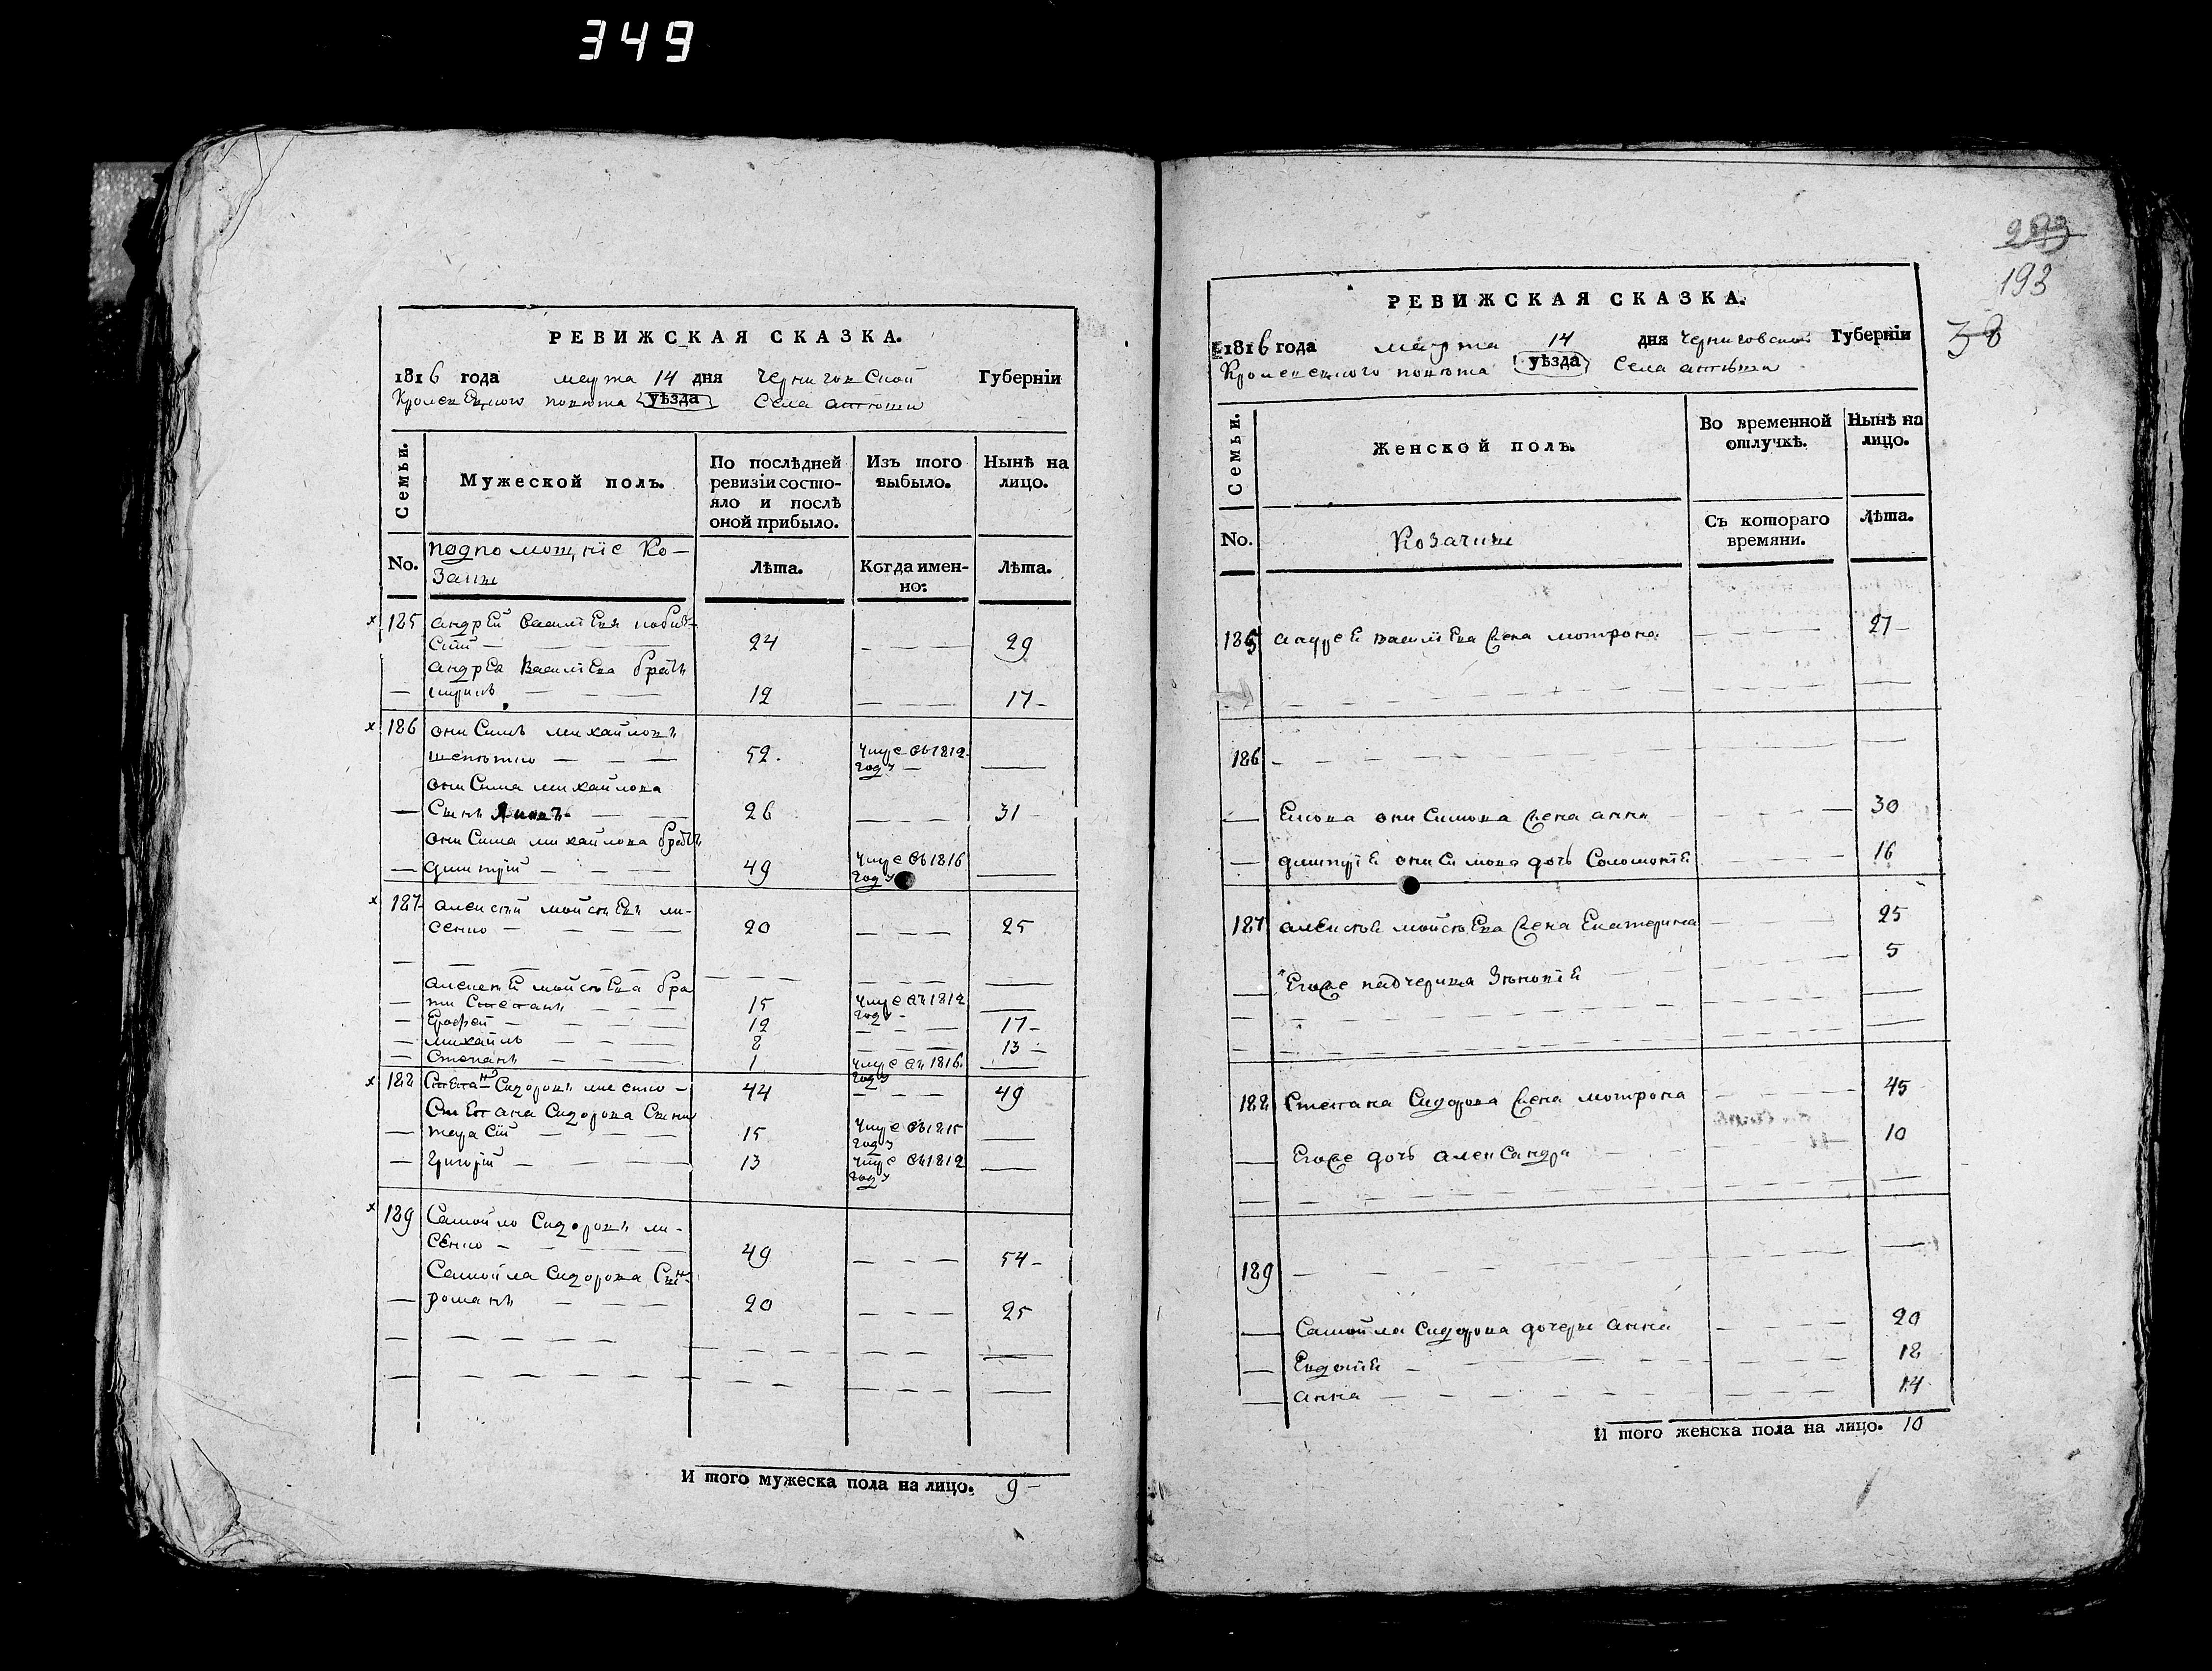 349
РЕВИЖСКАЯ СКАЗКА.
1816 года марта 14 дня Черниговской Губернїи
Кролевецкого повѣта уѣзда Села
No. Семьи. Мужеской полъ. По послѣдней ревизїи состояло и послѣ оной прибыло. Изъ того выбыло. Нынѣ на лицо.
подпомощнїе Козаки Лѣта. Когда именно: Лѣта.
185 андрей василїевъ
24 — — — 29
андрея василїева братъ
12 — — — 17
186 онисимъ михайловъ
52. умре въ 1812 году —
онисима михайлова
— Синъ 26 — — — 31
онисима михайлова братъ
— дмитрїй — 49 умре въ 1816 году —
187 алексѣй мойсѣевъ ли-
сенко — 20 — — — 25
алексѣя мойсѣева бра
ти Степанъ 15 умре въ 1812 году —
— Ерофей — 12 — — — 17
— михайло 8 — — — 13
— Степанъ 1 умре въ 1816 году —
188 Степанъ Сидоровъ 44 — — — 49
Степана Сидорова Сини
— тарасїй 15 умре въ 1815 году —
— григорїй — 13 умре въ 1812 году —
189 Самойло Сидоровъ ли-
сенко — 49 — — — 54
Самойла Сидорова Синъ
— романъ 20 — — — 25
И того мужеска пола на лицо. 9
293
193
38
РЕВИЖСКАЯ СКАЗКА.
1816 года марта 14 дня Черниговской Губернїи
Кролевецкого повѣта уѣзда Села
No. Семьи. Женской полъ. Во временной отлучкѣ. Нынѣ на лицо.
Козачки Съ котораго времяни. Лѣта.
185 андрея василїева жена мотрона — 27
186 — — —
— онисимова жена анна — 30
— дмитрїя онисимова дочь Соломонїя 16
187 алексѣя мойсѣева жена Екатерина 25
— Егоже падчерица Зѣновїя 5
188 Степана Сидорова жена мотрона 45
— Егоже дочь александра 10
189 — — —
— Самойла Сидорова дочери анна 20
— Евдокїя — 18
— анна — 14
И того женска пола на лицо. 10